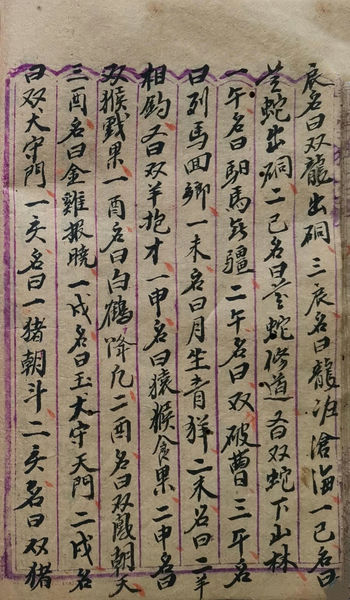 辰名曰双龍出硐 三辰名曰龍归滄海一巳名曰
蛇出硐二巳名曰蛇修道 双蛇下山林
一午名曰馹馬 疆 二午名曰双破曹 三午名
曰列馬回鄉一未名曰月生 二未名曰二羊
相 又曰双羊抱才一申名曰猿猴食果 二申名曰
双猴戲果一酉名曰白鶴降凡二酉名曰双 朝天
三酉名曰金雞報曉 一戌名曰玉犬守天門 二戌名
曰双犬守門 一亥名曰一猪朝斗二亥名曰双猪